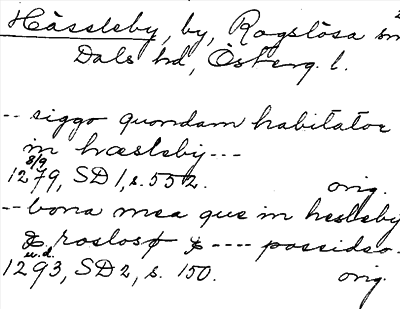 Hässleby, by, Rogslösa sn
Dals hd, Österg. l.
-- siggo quondam habitator
in hæsleby---
8/9
1279, SD 1, s. 552. orig.
-- bona mea que in hesleby
&. roslosφ & ---- possideo.
u.d.
1293, SD 2, s. 150. orig.